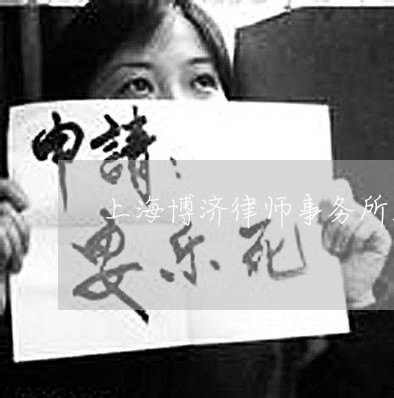 申請：
上海博济律师事务所
安乐死